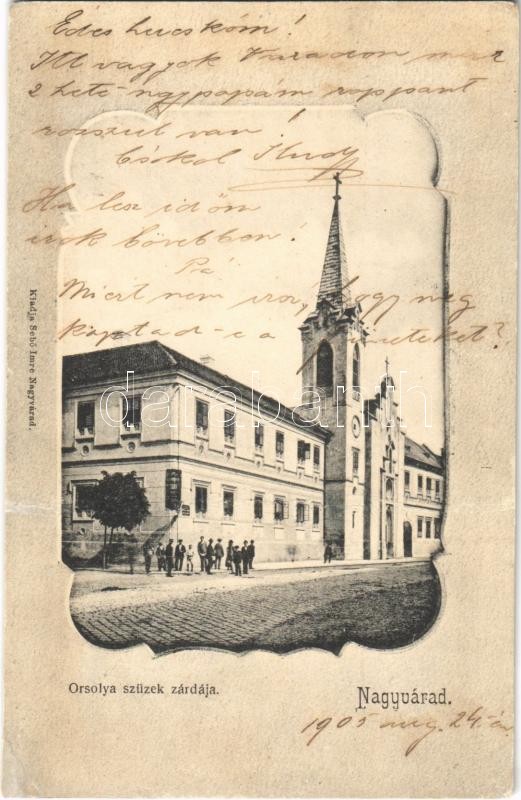 Édes hucskóm!
Itt vagyok Váradon már
2 hete nagypapám roppant
rosszul van!
Csókol
Ha lesz időm
írok bővebben!
Pá
Miért nem írsz, hogy meg
kaptad-e a
Kiadja Sebő Imre Nagyvárad.
darabanth
Orsolya szüzek zárdája.
Nagyvárad.
1905 aug. 24-én